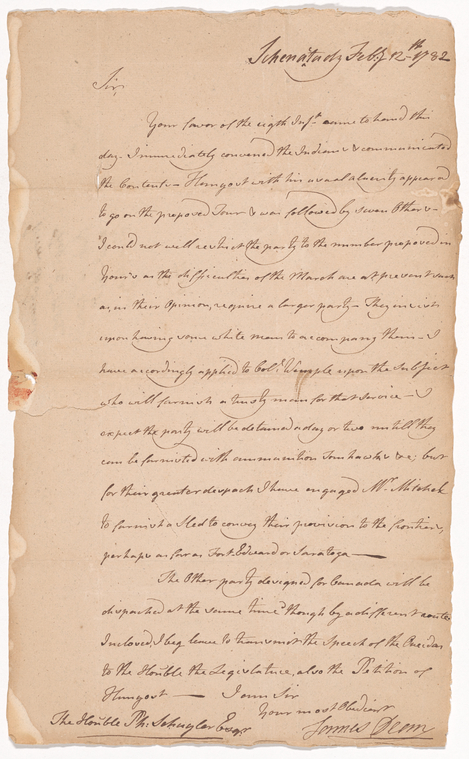 Schenatady Feby 12th 1782
Sir,
Your favor of the eigth Inst. came to hand this
day. I immediately convened the Indians & communicated
the Contents – Honyost with his usual alacrity appeared
to go on the proposed Tour & was followed by seven Others –
I could not well restrict the party to the number proposed in
Yours as the difficulties of the March are at present such
as, in their Opinion, require a larger party – They insist
upon having some white man to accompany them – I
have accordingly applied to Col. Wemple upon the Subject
who will furnish a trusty man for that service – I
expect the party will be detained a day or two untill they
can be furnished with ammunition Tomhawks &c; but
for their greater despach I have engaged Mr. Mitchel
to furnish a Sled to convey their provision to the frontier,
perhaps as far as Fort Edward or Saratoga —
The Other party designed for Canada will be
dispached at the same time though by a different route
Inclosed, I beg leave to transmit the Speech of the Oneidas
to the Honble the Legislature, also the Petition of
Honyost — I am Sir
Your most Obedient
The Honble Ph. Schuyler Esqr
James Dean